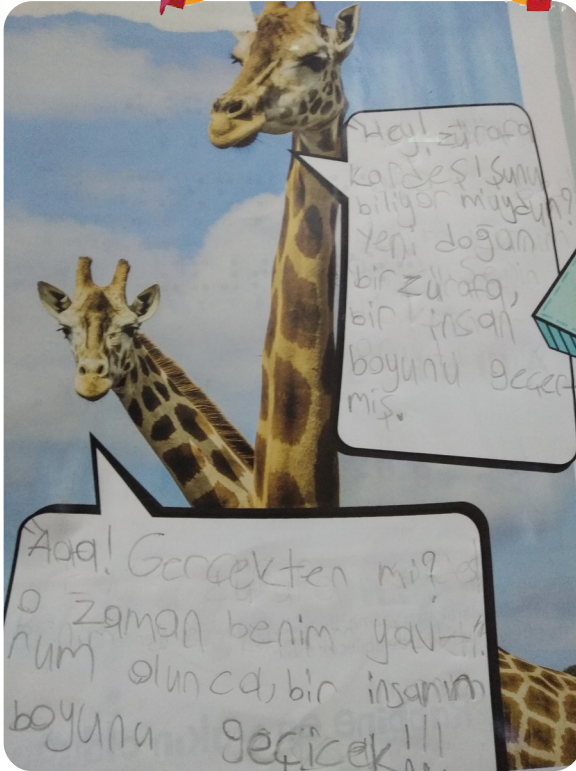 "Hey! zürafa
kardeş! Şunu
biliyor muydun?
Yeni doğan
bir zürafa,
bir insan
boyunu geçer-
miş.
"Aaa! Gerçekten mi?
O zaman benim yav-
rum olunca, bir insanın
boyunu geçicek!!!